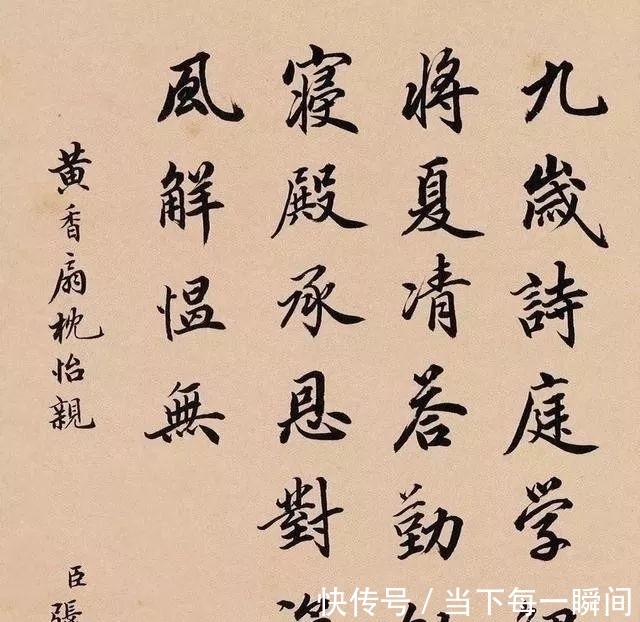 九歲詩庭学
将夏凊荅勤
寝殿承恩對
風解愠無
黄香扇枕怡親
臣張
快传号 / 当下每一瞬间